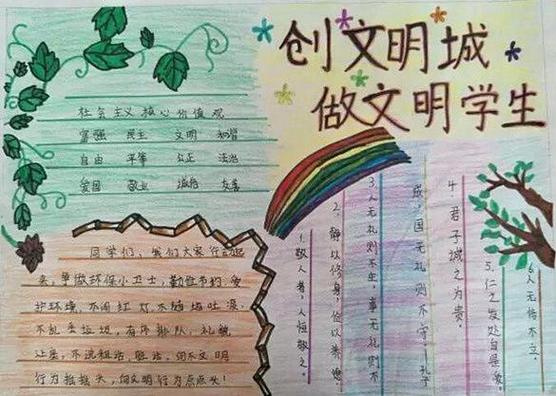 创文明城
做文明学生
社会主义核心价值观
富强 民主 文明 和谐
自由 平等 公正 法治
爱国 敬业 诚信 友善
同学们，我们大家行动起
来，争做环保小卫士，勤俭节约，爱
护环境，不闯红灯，不随地吐痰，
不乱丢垃圾，有序排队，礼貌
让座，不说粗话、脏话，向不文明
行为摇摇头，向文明行为点点头！
1. 敬人者，人恒敬之。
2. 静以修身，俭以养德
3. 人无礼则不生，事无礼则不
成，国无礼则不宁——孔子
4. 君子诚之为贵。
5. 仁之发处自是爱。
6. 人无信不立。